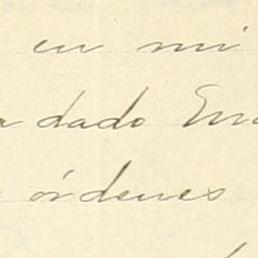 en mi
dado
órdenes